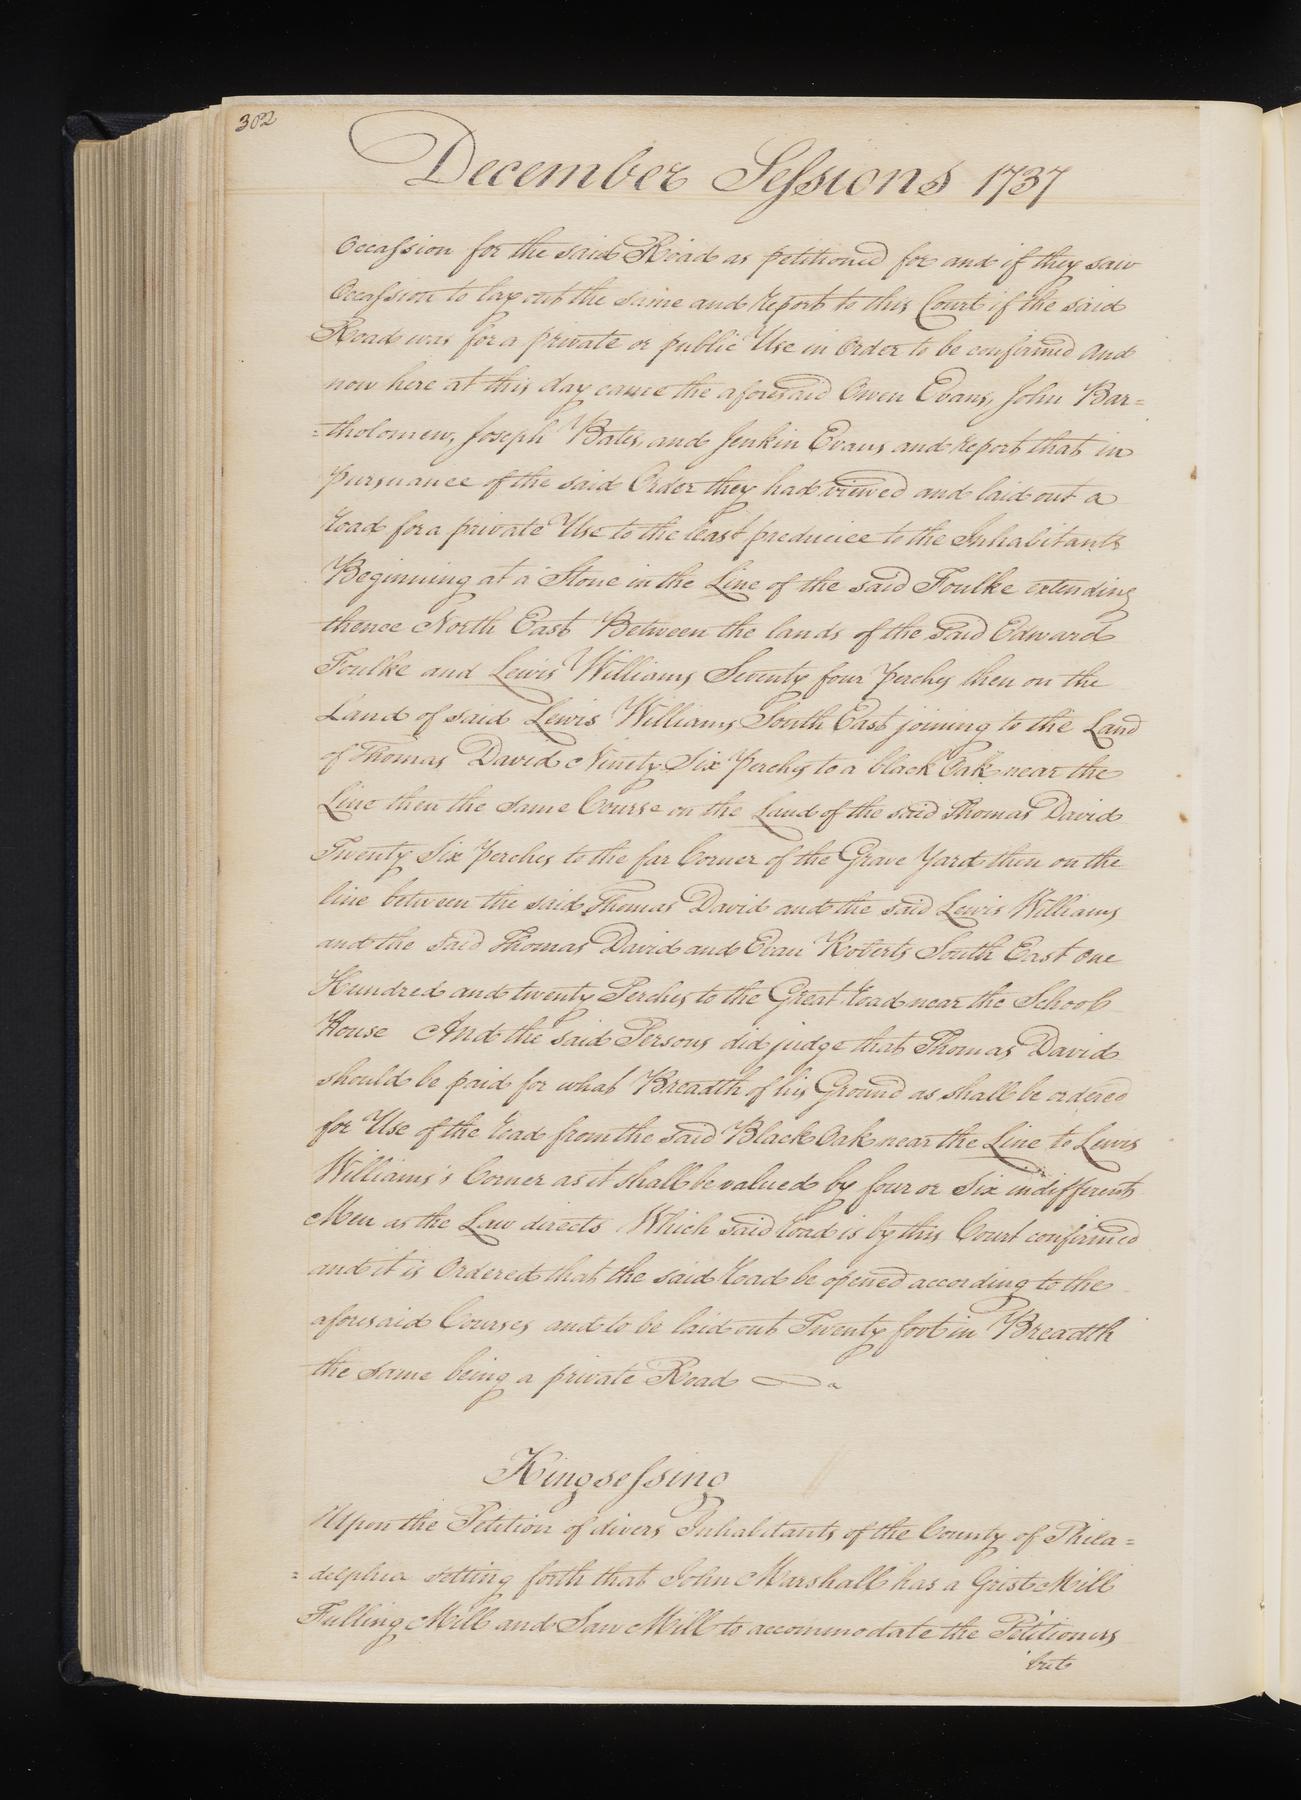 302
December Sessions 1737
Occassion for the said Road as petitioned for and if they saw
Occassion to lay out the same and report to this Court if the said
Road was for a private or public Use in Order to be confirmed And
now here at this day came the aforesaid Owen Evans, John Bar=
=tholomew, Joseph Bates, and Jenkin Evans and report that in
pursuance of the said Order they had viewed and laid out a
road for a private Use to the least predudice to the Inhabitants
Beginning at a Stone in the Line of the said Foulke extending
thence North East Between the lands of the said Edward
Foulke and Lewis Williams Seventy four Perches then on the
Land of said Lewis Williams South East joining to the Land
of Thomas David Ninety Six Perches to a black Oak near the
Line then the same Course on the Land of the said Thomas David
Twenty Six Perches to the far Corner of the Grave Yard then on the
line between the said Thomas David and the said Lewis Williams
and the said Thomas David and Evan Roberts South East One
Hundred and twenty Perches to the Great road near the School
House And the said Persons did judge that Thomas David
should be paid for what Breadth of his Ground as shall be ordered
for Use of the road from the said Black Oak near the Line to Lewis
Williams's Corner as it shall be valued by four or Six indifferent
Men as the Law directs Which said road is by this Court confirmed
and it is Ordered that the said road be opened according to the
aforesaid Courses and to be laid out Twenty foot in Breadth
the same being a private Road
Kingsessing
Upon the Petition of divers Inhabitants of the County of Phila=
=delphia setting forth that John Marshall has a Grist Mill
Fulling Mill and Saw Mill to accommodate the Petitioners
but